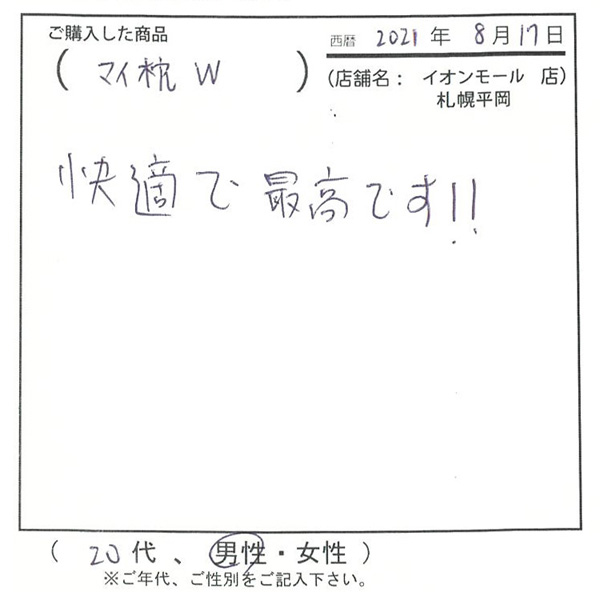 ご購入した商品
西暦 2021 年 8 月 17 日
( マイ枕 W )
(店舗名： イオンモール 店)
札幌平岡
快適で最高です!!
( 20 代 、 男性・女性 )
※ご年代、ご性別をご記入下さい。